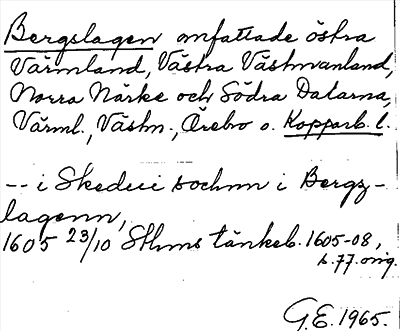 Bergslagen omfattade östra
Värmland, Västra Västmanland,
Norra Närke och Södra Dalarna,
Värml., Västm., Örebro o. Kopparb. l.
-- i Skeduii sochnn i Bergz-
lagenn,
1605 23/10 Sthms tänkeb. 1605-08,
s. 77. orig.
G.E. 1965.